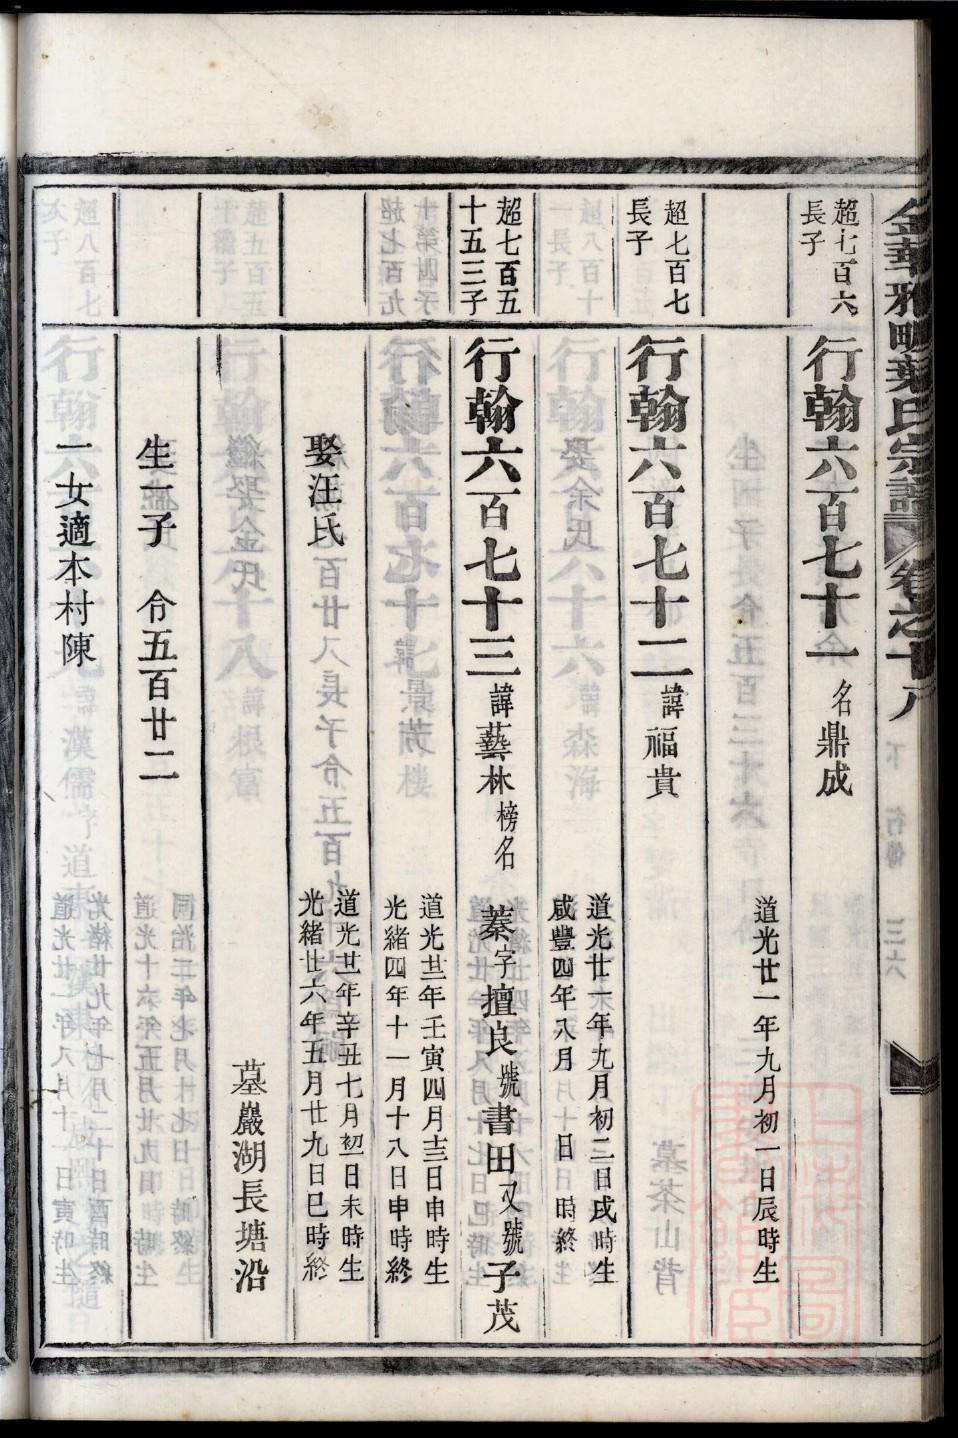 金華雅畈葉氏宗譜 卷之十八 下 行傳 三六
超七百六
長子
行翰六百七十一 名鼎成
道光廿一年九月初一日辰時生
超七百七
長子
行翰六百七十二 諱福貴
道光廿一年九月初二日戌時生
咸豐四年八月 日 時終
超七百五
十五三子
行翰六百七十三 諱藝林 榜名 蓁 字 擅良 號 書田 又號 子茂
道光廿二年壬寅四月十三日申時生
光緒四年十一月十八日申時終
娶汪氏
道光廿一年辛丑七月初一日未時生
光緒廿六年五月廿九日巳時終
墓巖湖長塘沿
生一子 令五百廿二
一女適本村陳